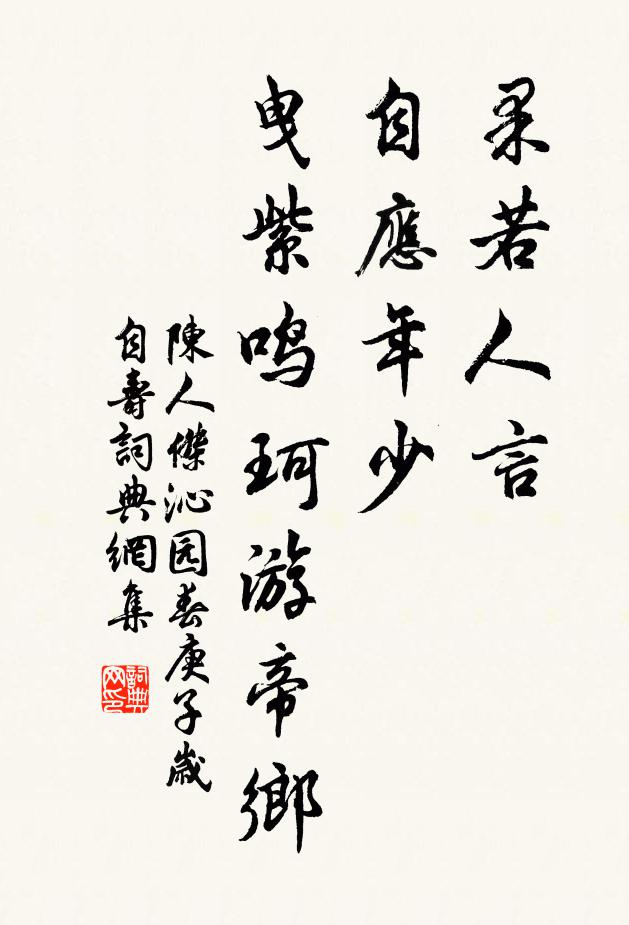 果若人言
自應年少
曳紫鳴珂游帝鄉
陳人傑沁园春庚子歲
自壽詞典網集
詞典
网印